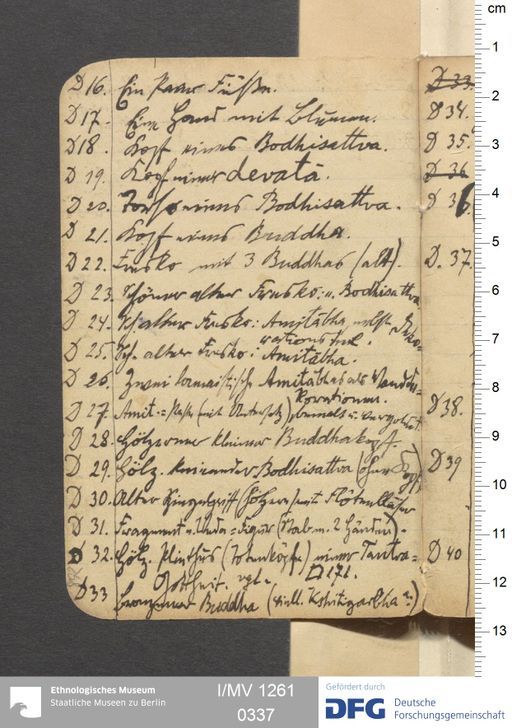 D 16. Ein Paar Füße.
D 17. Eine Hand mit Blumen.
D 18. Kopf eines Bodhisattva.
D 19. Kopf einer devatā.
D 20. Torso eines Bodhisattva.
D 21. Kopf eines Buddha.
D 22. Fresko mit 3 Buddhas (alt).
D 23. Schöner alter Fresko: Bodhisattva
D 24. alter Fresko: Amitābha nebst
D 25. alter Fresko: Amitābha.
D 26. Zwei lamaistische Amitābhas als Wand-
D 27. Amit. (mit Untersatz) bemalt u. vergoldet
D 28. Hölzerner kleiner Buddhakopf.
D 29. Hölz. knieender Bodhisattva (ohne Kopf)
D 30. Alter (hölzern) mit
D 31. Fragment (Stab m. 2 Händen).
D 32. Hölz. Plinthus (Totenköpfe) einer Tantra-
Gottheit. vgl. D 171.
D 33 bronzener Buddha (viell. Kshitigarbha?)
D 33.
D 34.
D 35.
D 36
D 36
D. 37
D 38.
D 39
D 40
cm
1
2
3
4
5
6
7
8
9
10
11
12
13
Ethnologisches Museum
Staatliche Museen zu Berlin
I/MV 1261
0337
Gefördert durch
DFG Deutsche
Forschungsgemeinschaft